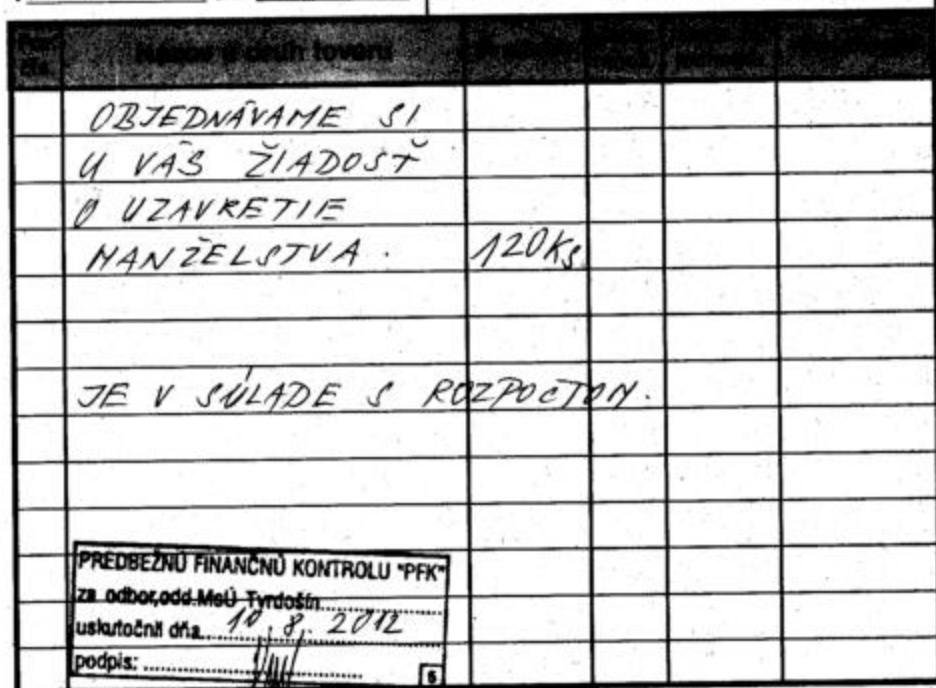 Názov a druh tovaru
OBJEDNÁVAME SI
U VÁS ŽIADOSŤ
O UZAVRETIE
MANŽELSTVA. 120Ks
JE V SÚLADE S ROZPOČTOM.
PREDBEŽNÚ FINANČNÚ KONTROLU "PFK"
za odbor,odd.MsÚ Tvrdošín
uskutočnil dňa 10.8.2012
podpis:
5